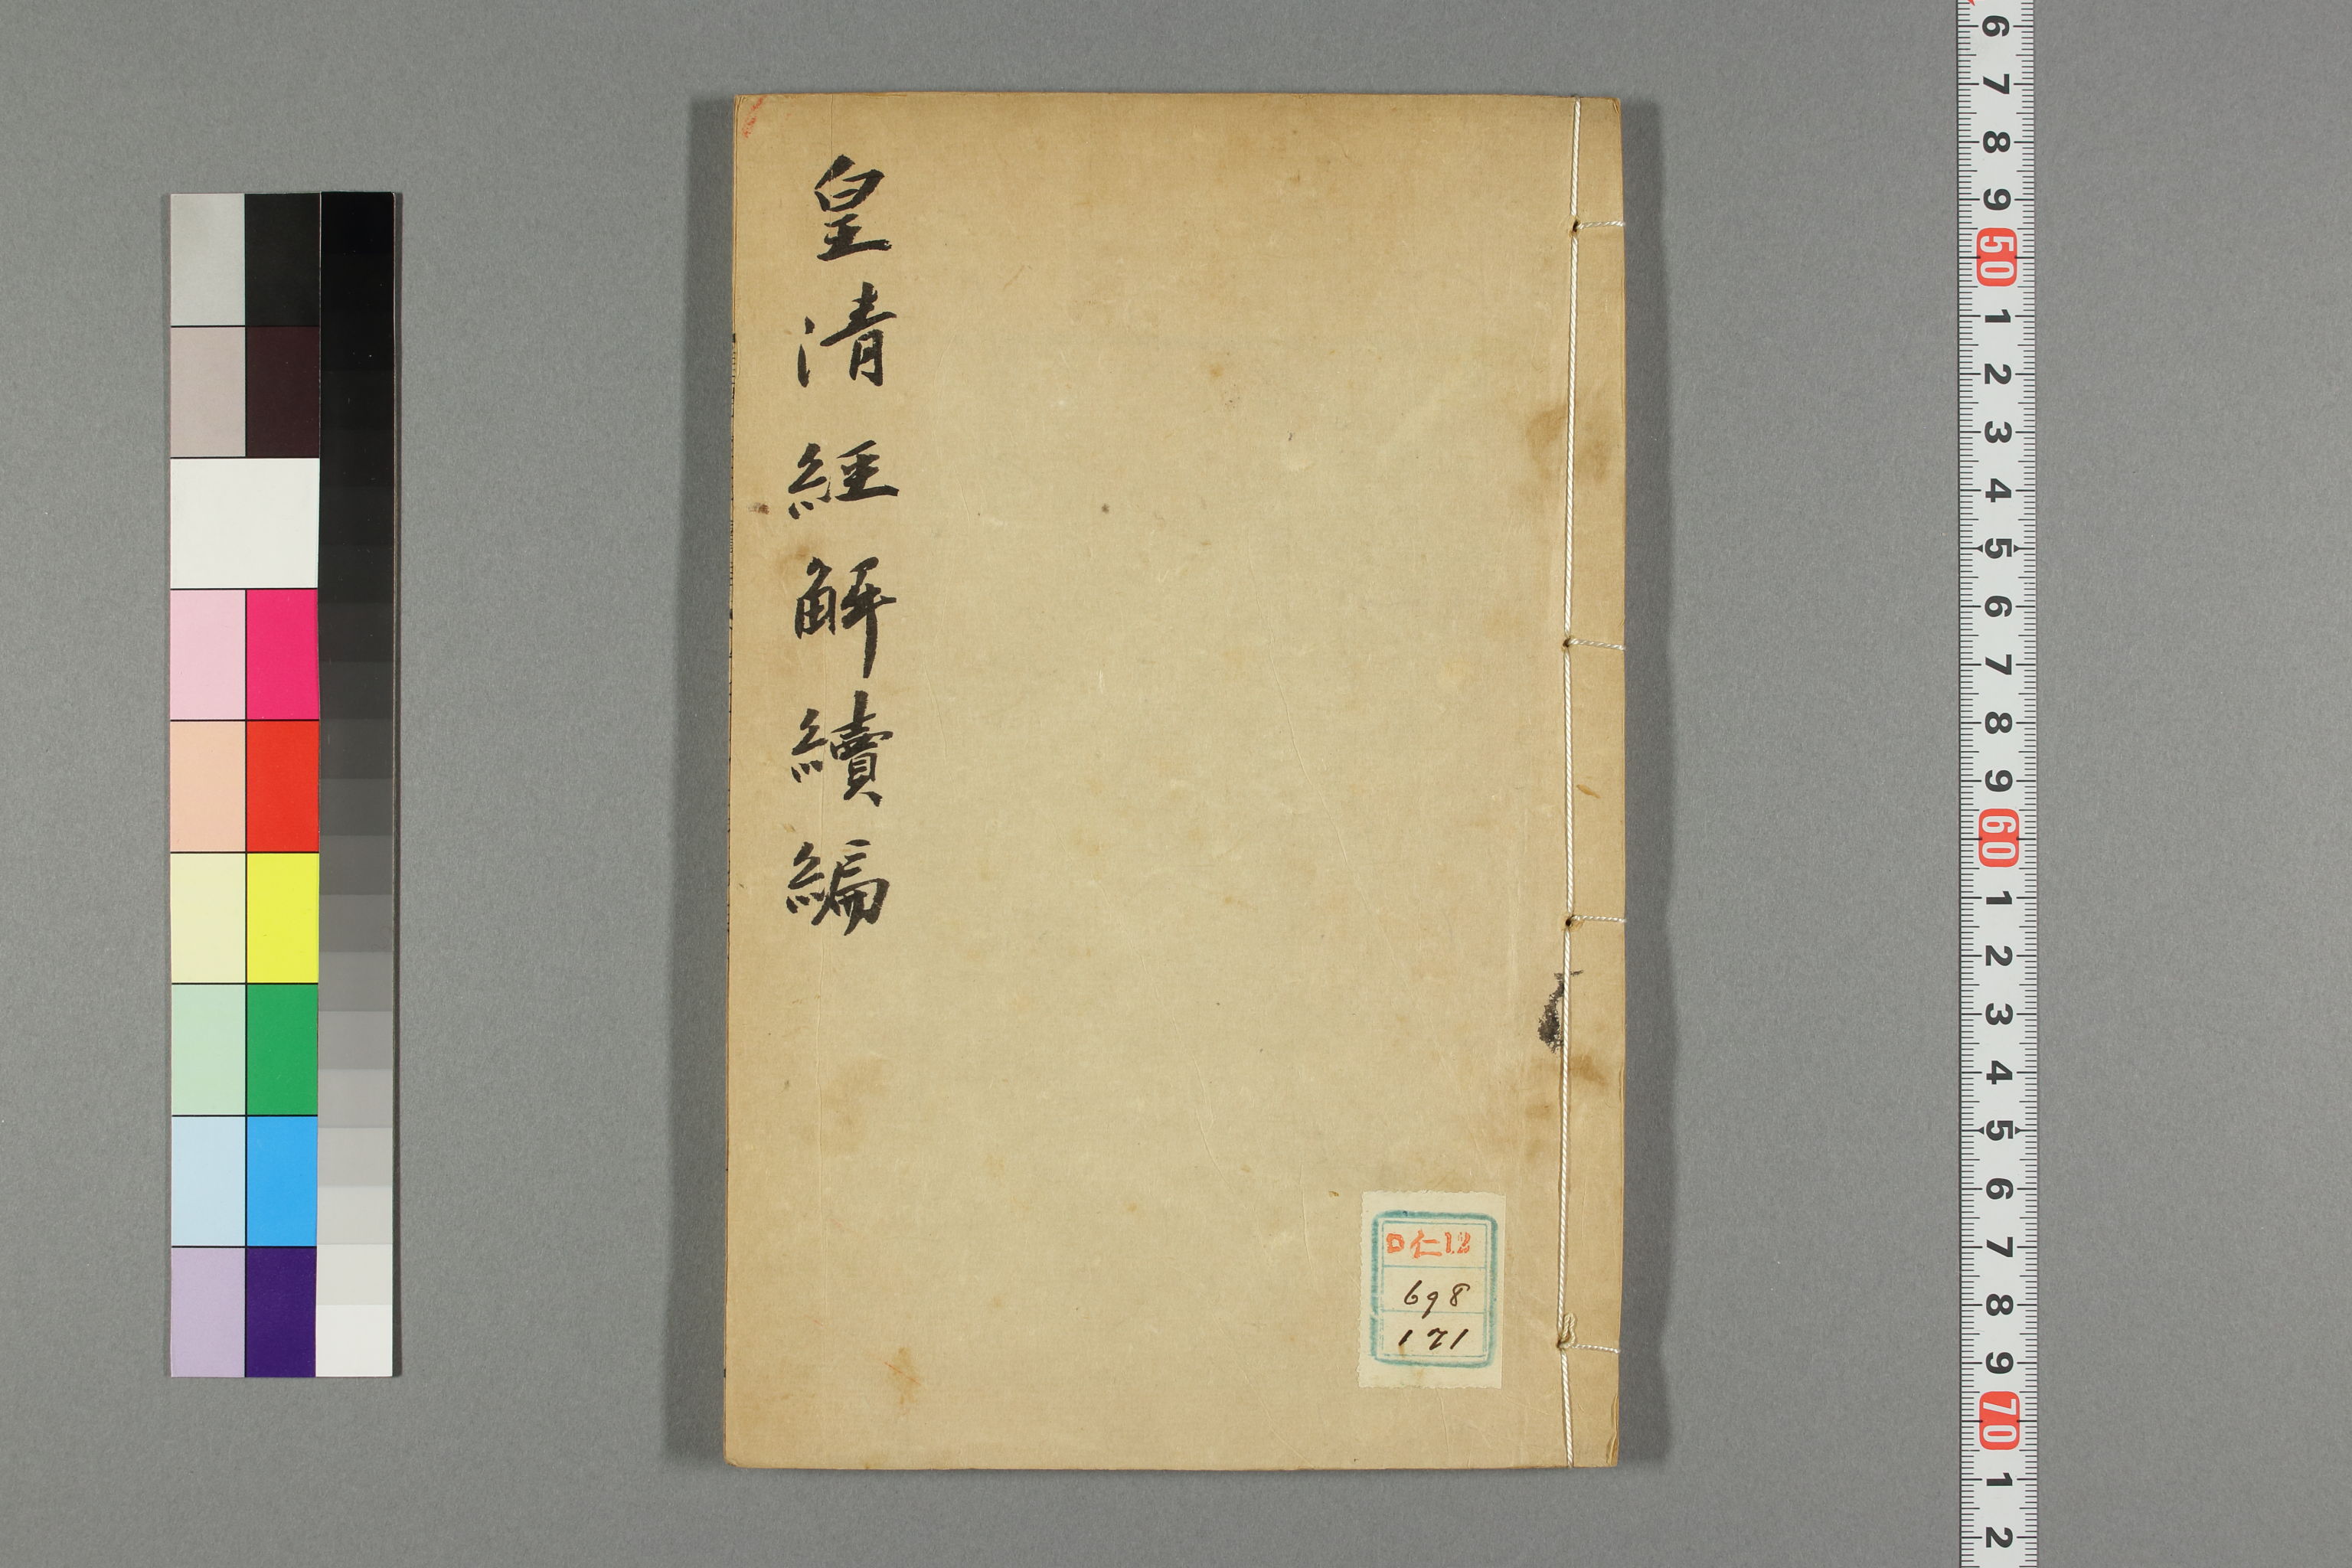 皇清經解續編
D仁12
698
171
6
7
8
9
50
1
2
3
4
5
6
7
8
9
60
1
2
3
4
5
6
7
8
9
70
1
2